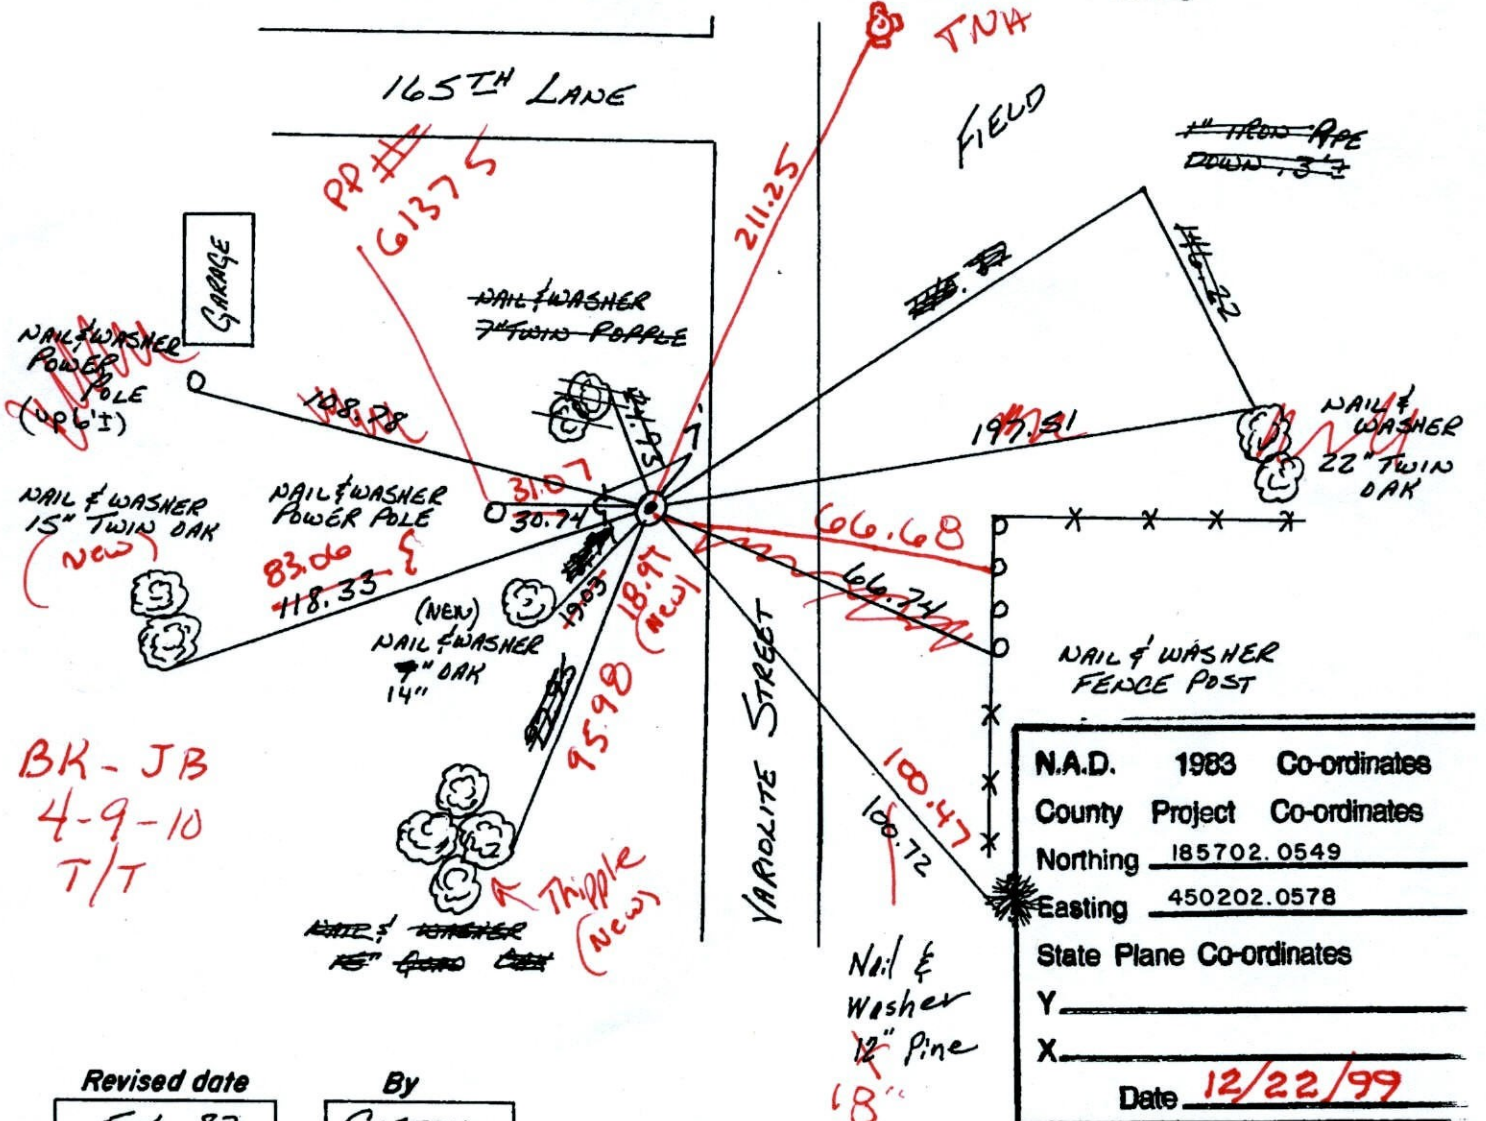 TNH
165TH LANE
FIELD
1" IRON PIPE
DOWN .3'±
PP #
61375
211.25
GARAGE
NAIL & WASHER
7" TWIN POPPLE
116.22
NAIL & WASHER
POWER
POLE
(UP 6'±)
108.78
197.51
NAIL &
WASHER
22" TWIN
OAK
NAIL & WASHER
15" TWIN OAK
(New)
NAIL & WASHER
POWER POLE
31.07
30.74
66.68
66.74
83.06
118.33
(NEW)
NAIL & WASHER
OAK
14"
19.03
18.97
(New)
NAIL & WASHER
FENCE POST
95.98
VARIOLITE STREET
100.47
100.72
BK - JB
4-9-10
T/T
Thipple
(New)
NAIL & WASHER
QUAD OAK
Nail &
Washer
12" Pine
18"
N.A.D. 1983 Co-ordinates
County Project Co-ordinates
Northing 185702.0549
Easting 450202.0578
State Plane Co-ordinates
Y
X
Date 12/22/99
Revised date By